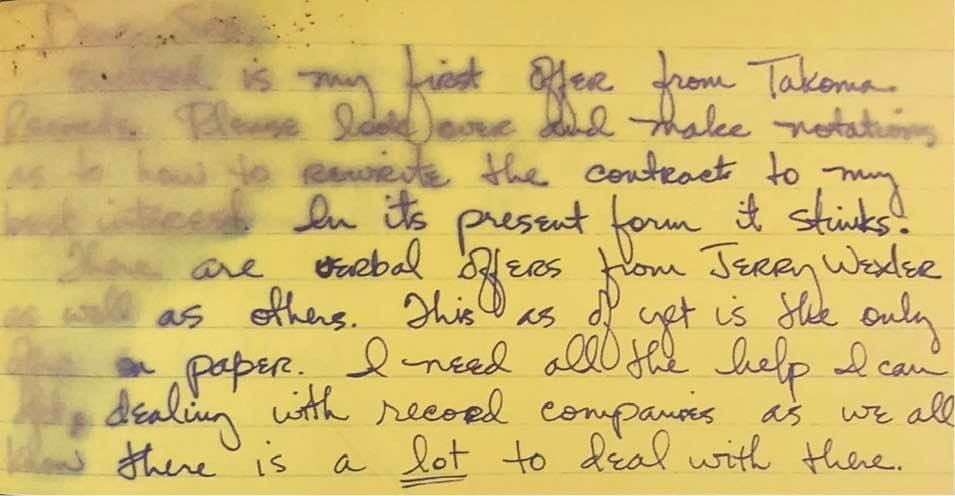 Enclosed is my first offer from Takoma
Records. Please look over and make notations
as to how to rewrite the contract to my
best interest. In its present form it stinks.
There are verbal offers from Jerry Wexler
as well as others. This as of yet is the only
on paper. I need all the help I can
dealing with record companies as we all
know there is a lot to deal with there.